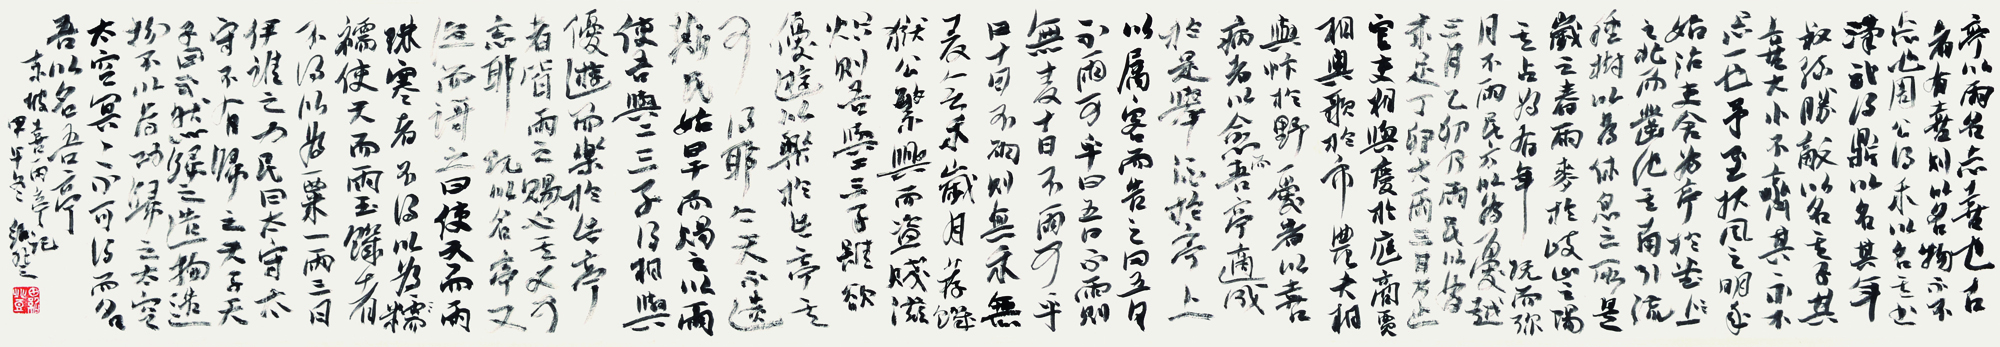 亭以雨名志喜也古
者有喜則以名物示不
忘也周公得禾以名其書
漢武得鼎以名其年
叔孫勝敵以名其子其
喜大小不齊其示不
忘一也予至扶風之明年
始治官舍為亭於堂上
之北而鑿池其南引流
種樹以為休息之所是
歲之春雨麥於岐山之陽
其占為有年既而彌
月不雨民方以為憂越
三月乙卯乃雨民以為
未足丁卯大雨三日乃止
官吏相與慶於庭商賈
相與歌於市農夫相
與忭於野憂者以喜
病者以愈而吾亭適成
於是舉酒於亭上
以屬客而告之曰五日
不雨可乎曰五日不雨則
無麥十日不雨可乎
曰十日不雨則無禾無
麥無禾歲月荐饑
獄訟繁興而盜賊滋
熾則吾與二三子雖欲
優遊以樂於此亭其
可得耶今天不遺
斯民始旱而賜之以雨
使吾與二三子得相與
優遊而樂於此亭
者皆雨之賜也其又可
忘耶既以名亭又
從而歌之曰使天而雨
珠寒者不得以為襦
襦使天而雨玉饑者
不得以為粟一雨三日
伊誰之力民曰太守太
守不有歸之天子天
子曰不然歸之造物造
物不以為功歸之太空
太空冥冥不可得而名
吾以名吾亭
東坡喜雨亭記
甲午冬